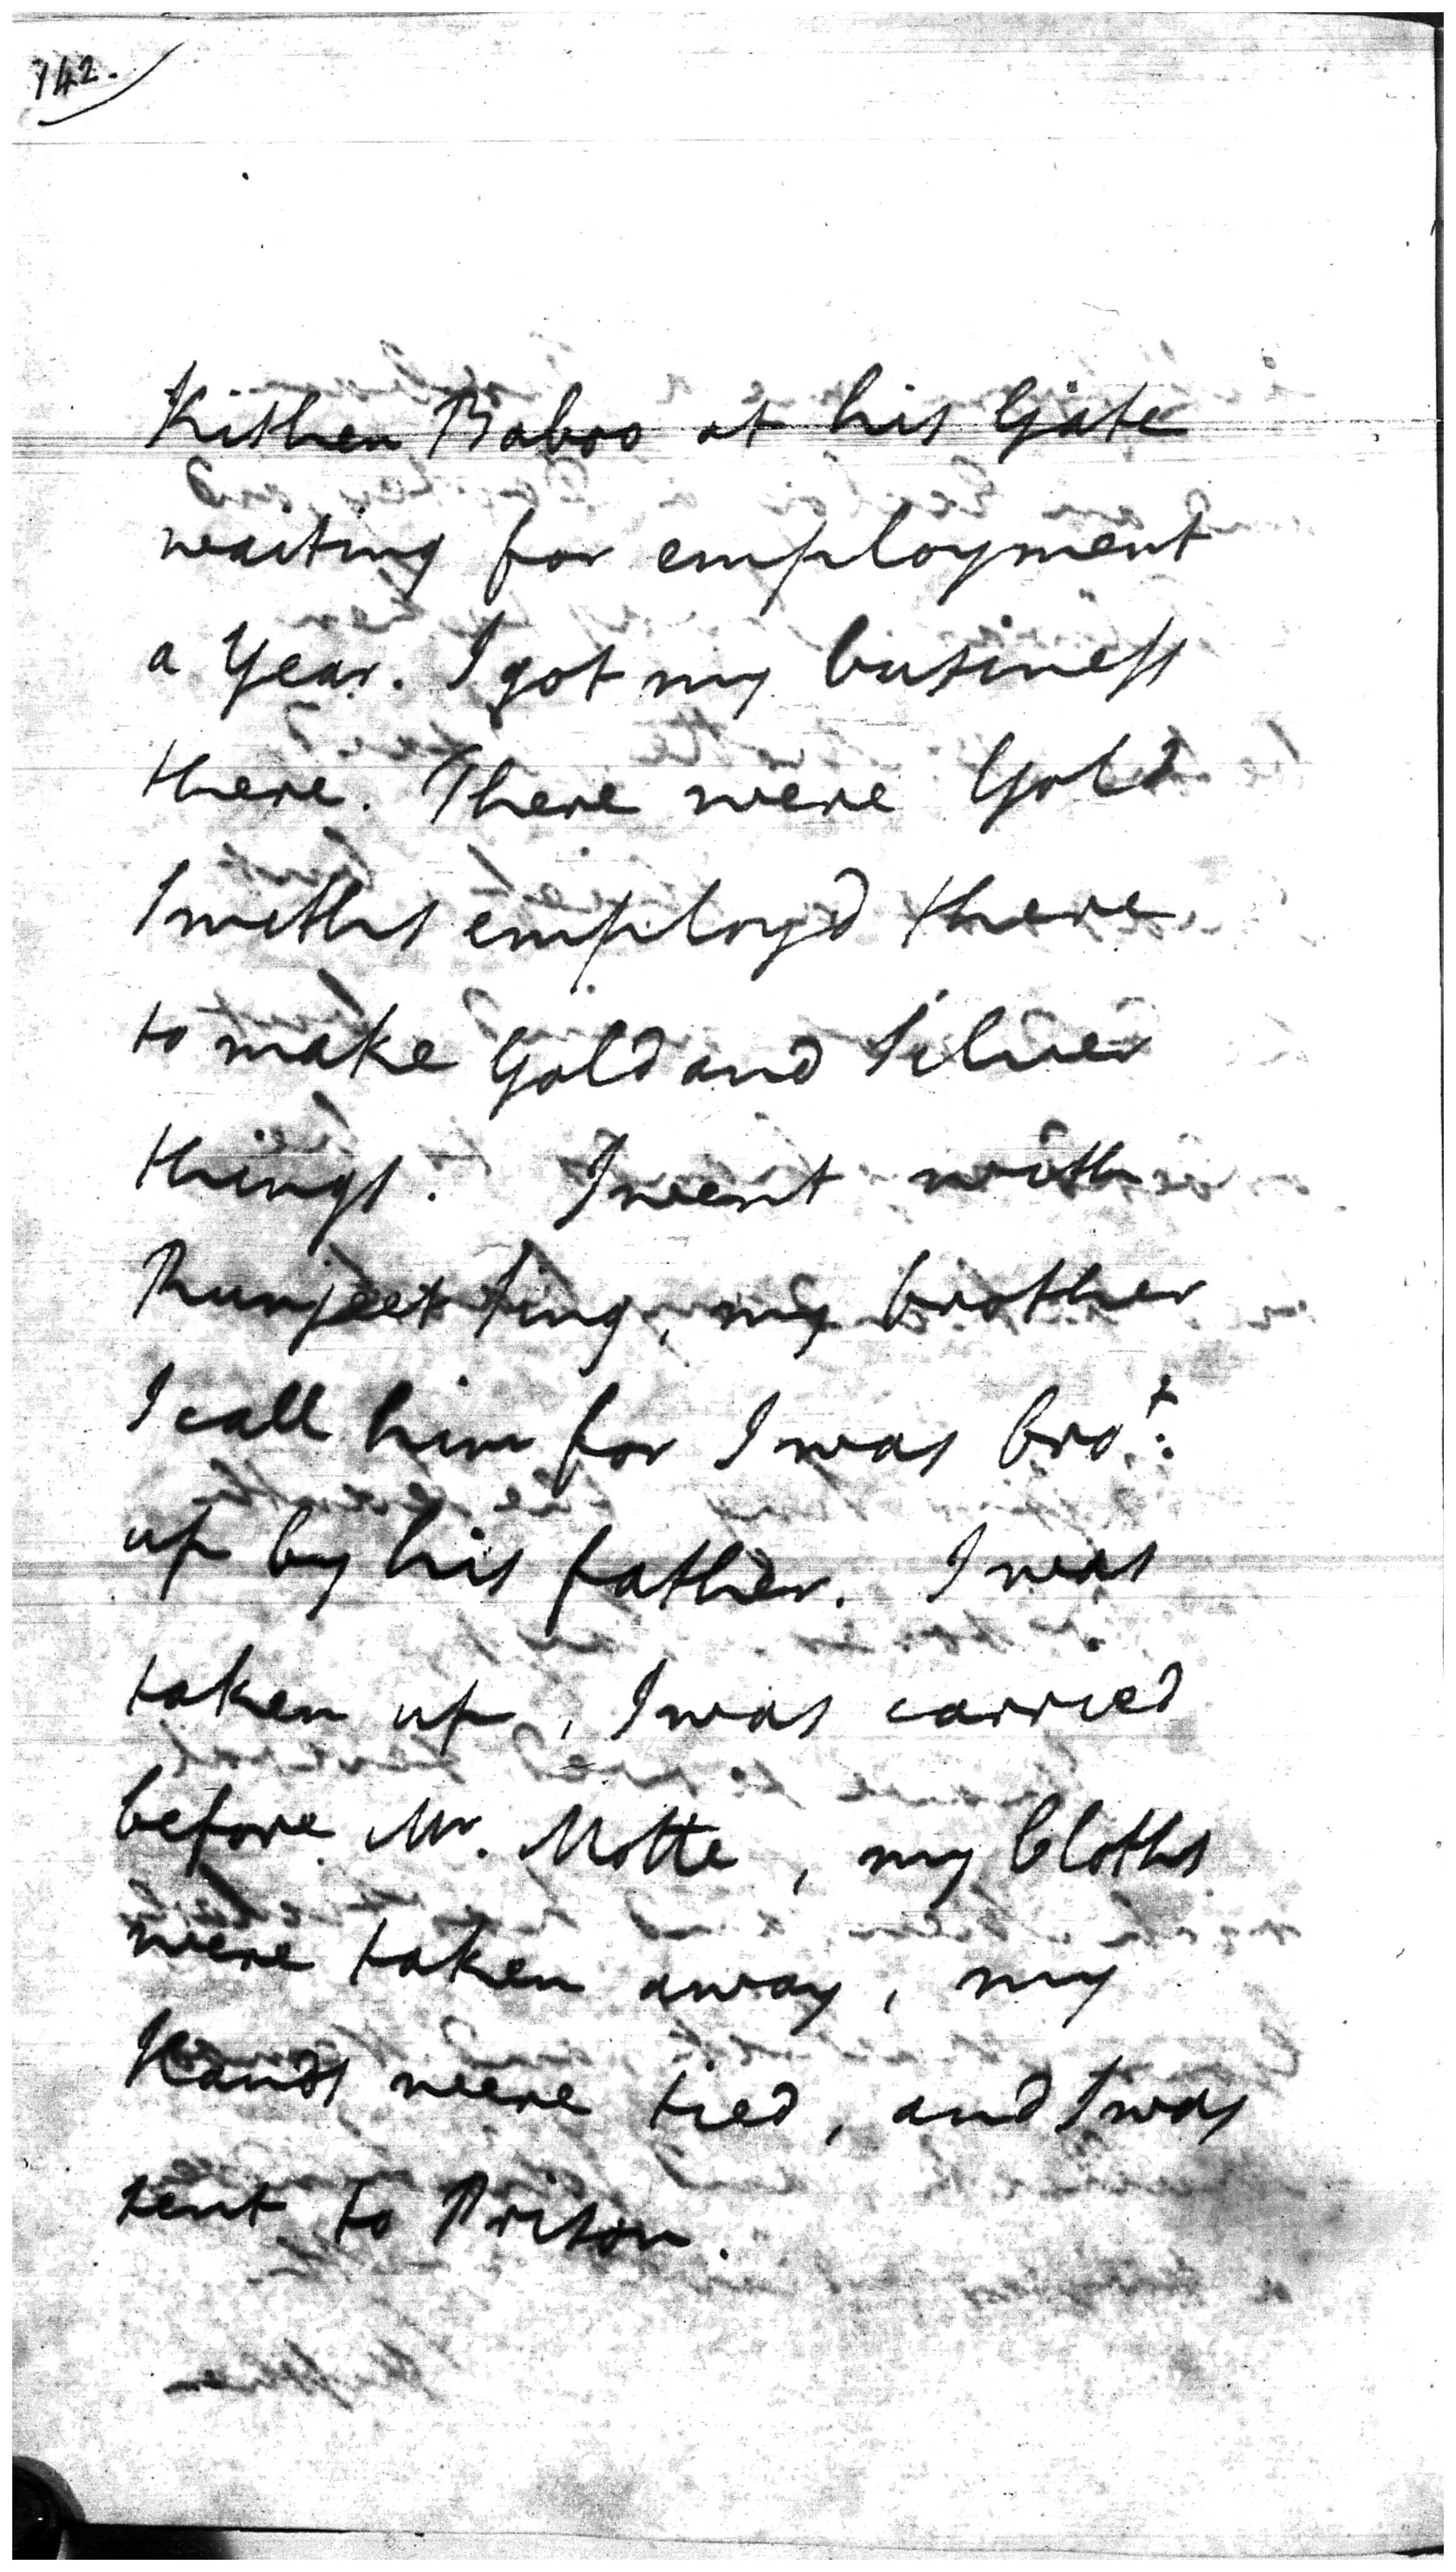 742.
Kishen Baboo at his Gate
waiting for employment
a Year. I got my business
there. There were Gold
Smiths employ'd there
to make Gold and Silver
things. I went with
Runjeet Sing, my brother
I call him for I was bro.t:
up by his father. I was
taken up, I was carried
before Mr. Motte, my Cloths
were taken away, my
Hands were tied, and I was
sent to Prison.